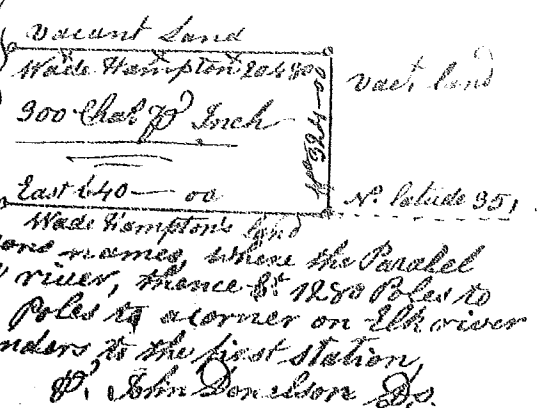 Vacant Land
Wade Hampton 20480
Vact land
300 Chas pr Inch
East 640 — 00
No. latude 35,
Wade Hampton's land
names, where the Paralel
river, thence Et. 1280 Poles to
Poles to a corner on Elk river
nders, to the first station,
P. John Donelson Ds.